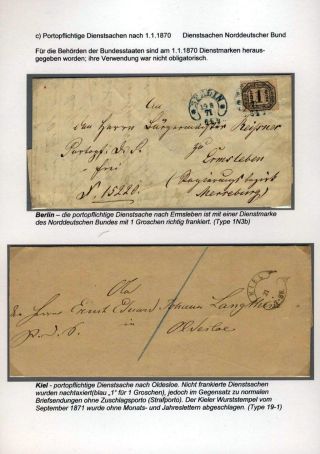 c) Portopflichtige Dienstsachen nach 1.1.1870 Dienstsachen Norddeutscher Bund
Für die Behörden der Bundesstaaten sind am 1.1.1870 Dienstmarken heraus-
gegeben worden; ihre Verwendung war nicht obligatorisch.
BERLIN
71
1
den Herrn Bürgermeister
Portopf. D. S.
frei
zu
Ermsleben
(Regierungsbezirk
Merseburg)
Berlin – die portopflichtige Dienstsache nach Ermsleben ist mit einer Dienstmarke
des Norddeutschen Bundes mit 1 Groschen richtig frankiert. (Type 1N3b)
KIEL
Herrn Ernst Eduard Johann
Kiel - portopflichtige Dienstsache nach Oldesloe. Nicht frankierte Dienstsachen
wurden nachtaxiert(blau „1" für 1 Groschen), jedoch im Gegensatz zu normalen
Briefsendungen ohne Zuschlagsporto (Strafporto). Der Kieler Wurststempel vom
September 1871 wurde ohne Monats- und Jahreslettern abgeschlagen. (Type 19-1)